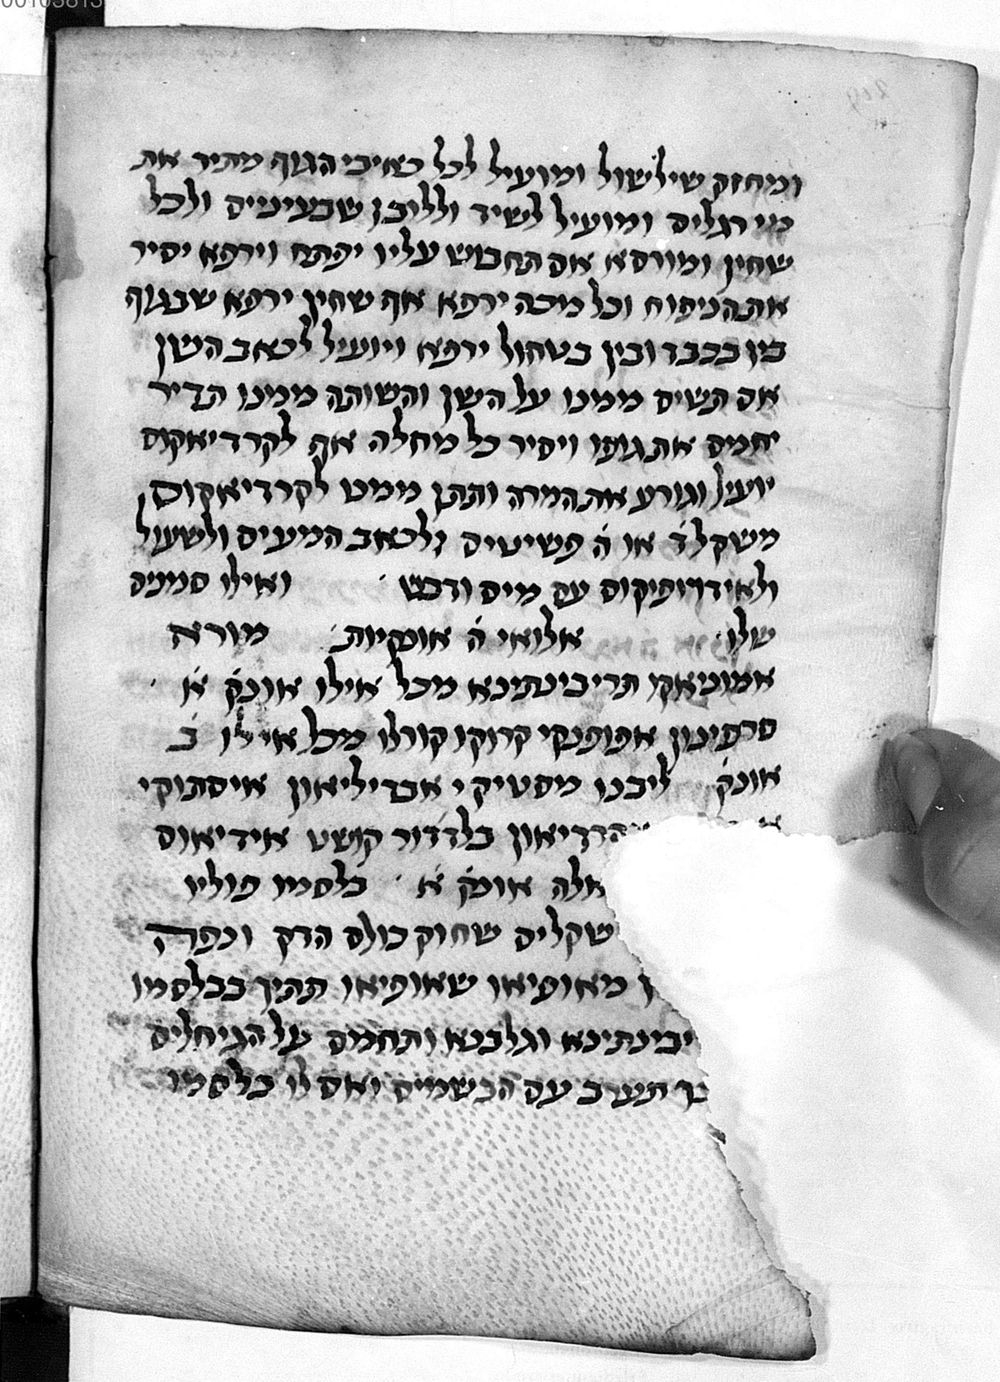 ומחזק שילשול ומועיל לכל כאיבי הגוף מתיר את
מי רגלים ומועיל לשיד וללובן שבעינים ולכל
שחין ומורסא אם תחבוש עליו יפתח וירפא יסיר
את הניפוח וכל מכה ירפא אף שחין ירפא שבגוף
בין בכבד ובין בטחול ירפא ויועיל לכאב השן
אם תשים ממנו על השן והשותה ממנו תדיר
יחמם את גופו ויסיר כל מחלה אף לקרדיאקוס
יועיל וגורע את המרה ותתן ממנו לקרדיאקוס
משקל ד או ה פשיטים ולכאב המעים ולשעול
ולאידרופיקוס עם מים ודבש ואילו סממנים
שלו אלואי ה אונקיות מורא
אמוניאקו תריבינתינא מכל אילו אונק א
סרפינון אפופנקי קרוקו קורלו מכל אילו ב
אונק ליבנו מסטיקי אבריליאון איסתוקי
בלדור קושט אידיאוס
אלה אונק א בלסמו פוליו
שקלים שחוק כולם הדק וכפרה
מאופיאו שאופיאו תתיך בבלסמו
יבינתינא וגלבנא ותחמם על הגיחלים
כך תערב עם הבשמים ואם לו בלסמו